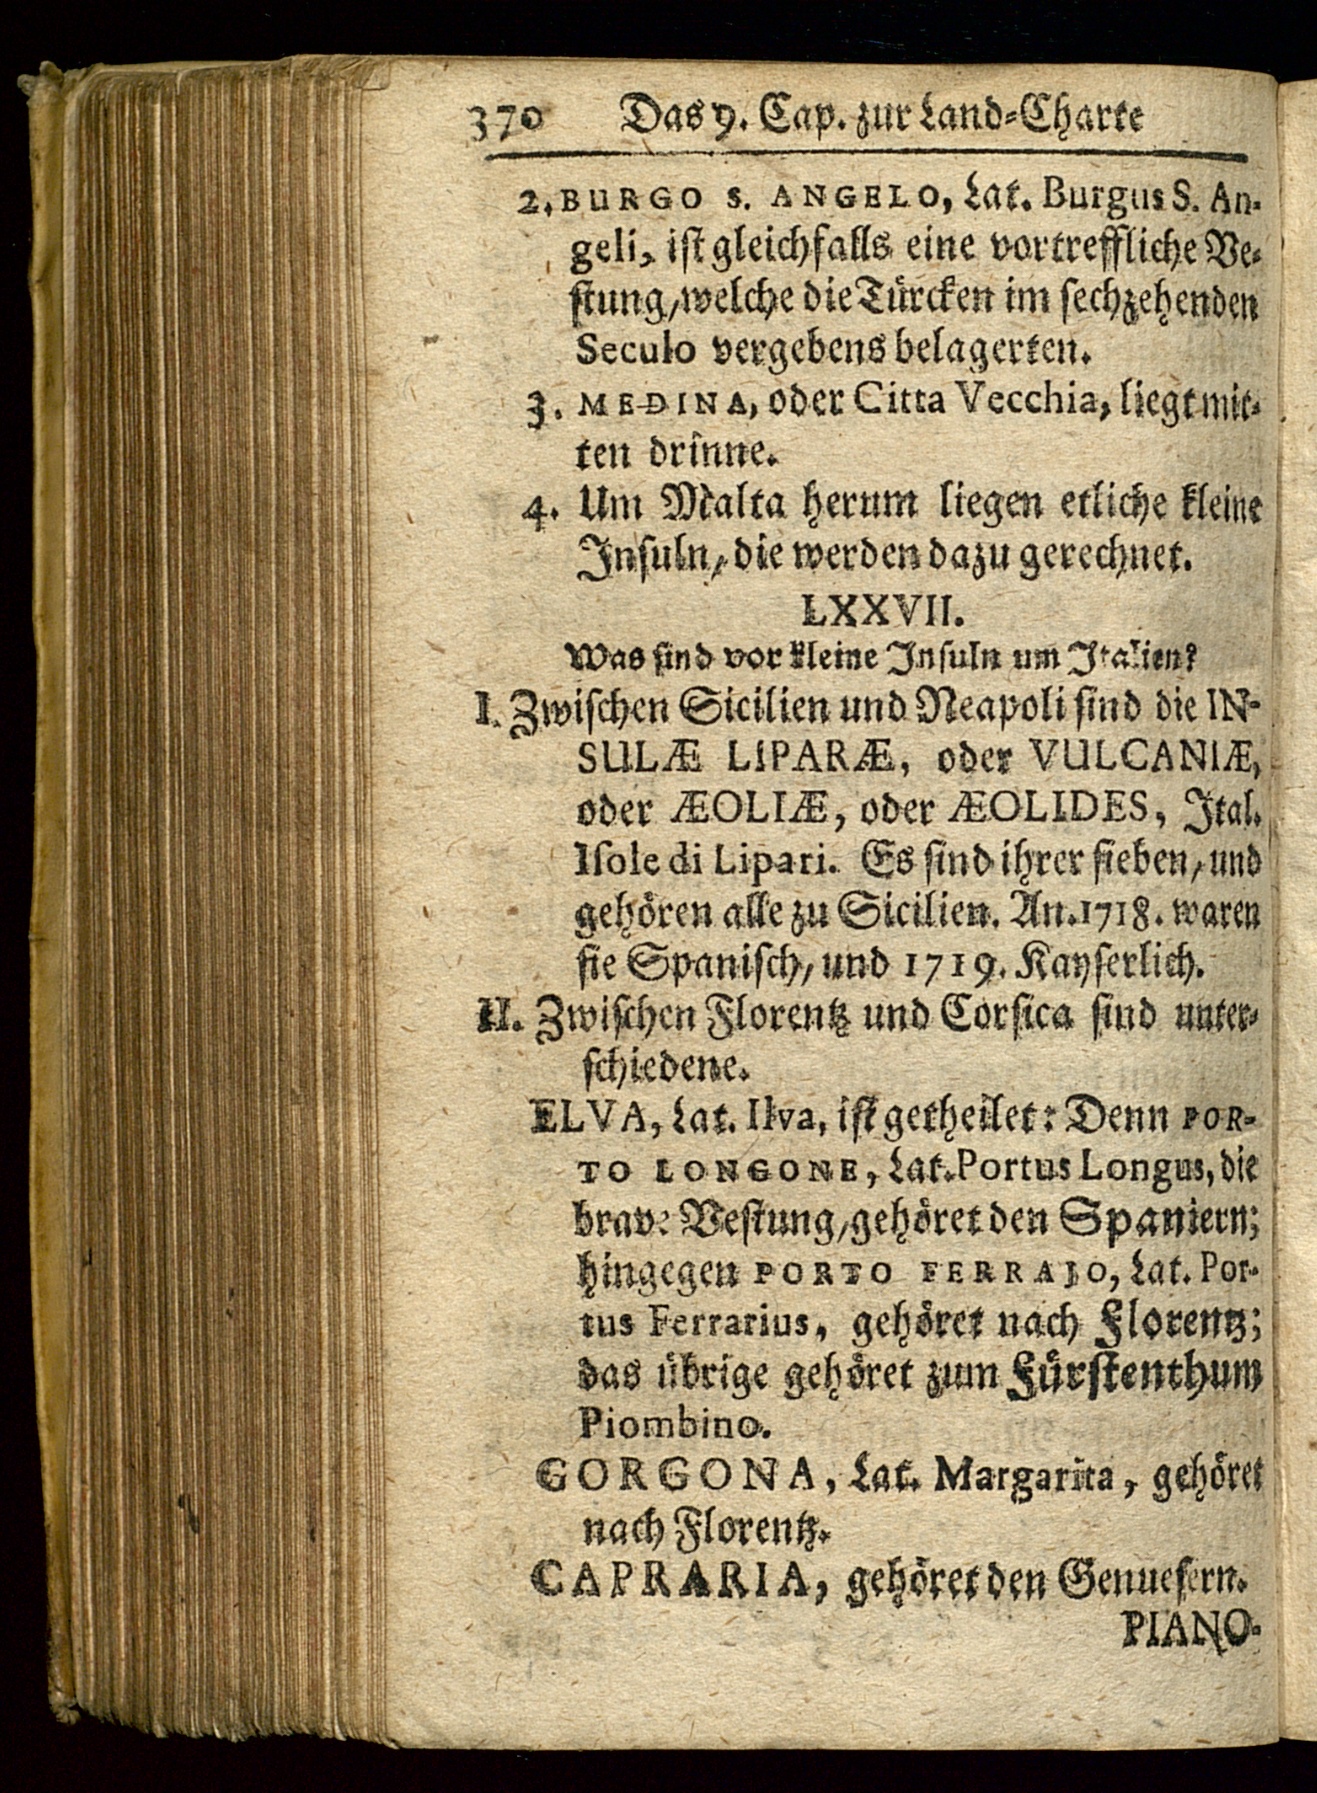 370 Das 9. Cap. zur Land-Charte
2. BURGO S. ANGELO, Lat. Burgus S. An-
geli, ist gleichfalls eine vortreffliche Ve-
stung, welche die Türcken im sechzehenden
Seculo vergebens belagerten.
3. MEDINA, oder Citta Vecchia, liegt mit-
ten drinne.
4. Um Malta herum liegen etliche kleine
Insuln, die werden dazu gerechnet.
LXXVII.
Was sind vor kleine Insuln um Italien?
I. Zwischen Sicilien und Neapoli sind die IN-
SULÆ LIPARÆ, oder VULCANIÆ,
oder ÆOLIÆ, oder ÆOLIDES, Ital.
Isole di Lipari. Es sind ihrer sieben, und
gehören alle zu Sicilien. An. 1718. waren
sie Spanisch, und 1719. Kayserlich.
II. Zwischen Florentz und Corsica sind unter-
schiedene.
ELVA, Lat. Ilva, ist getheilet: Denn POR-
TO LONGONE, Lat. Portus Longus, die
brave Vestung, gehöret den Spaniern;
hingegen PORTO FERRAJO, Lat. Por-
tus Ferrarius, gehöret nach Florentz;
das übrige gehöret zum Fürstenthum
Piombino.
GORGONA, Lat. Margarita, gehöret
nach Florentz.
CAPRARIA, gehöret den Genuesern.
PIANO-